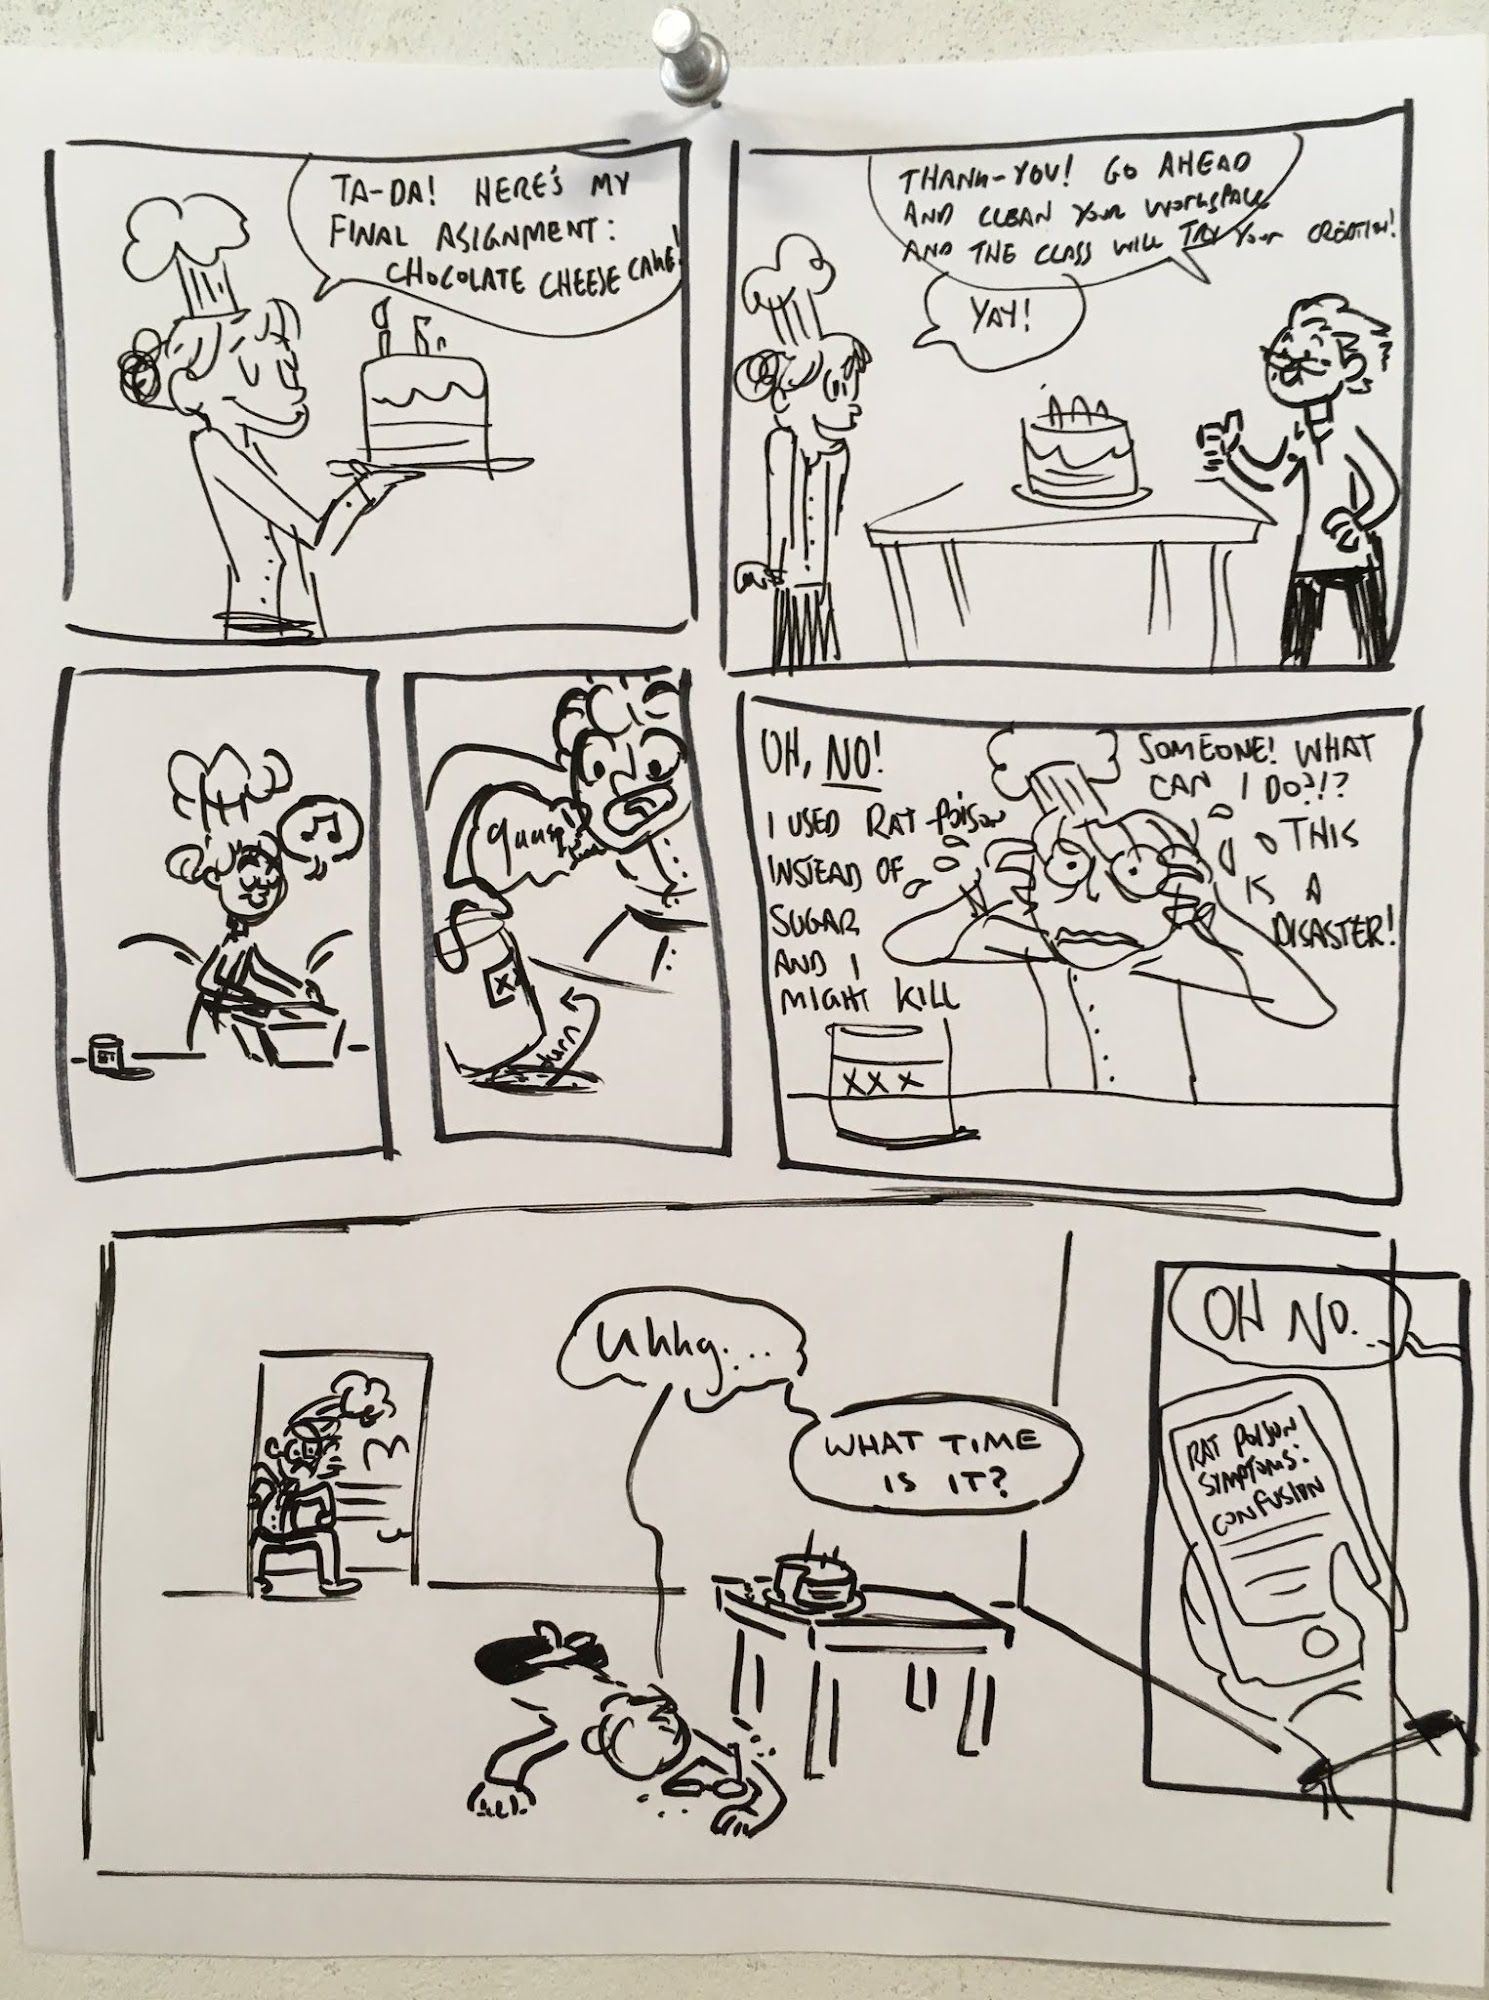 TA-DA! HERE'S MY
FINAL ASIGNMENT:
CHOCOLATE CHEESE CAKE!
THANK-YOU! GO AHEAD
AND CLEAN YOUR WORKSPACE
AND THE CLASS WILL TRY YOUR CREATION!
YAY!
X
turn
OH, NO!
I USED RAT POISON
INSTEAD OF
SUGAR
AND I
MIGHT KILL
SOMEONE! WHAT
CAN I DO?!?
THIS
IS A
DISASTER!
XXX
Uhhg...
WHAT TIME
IS IT?
OH NO..
RAT POISON
SYMPTOMS:
CONFUSION